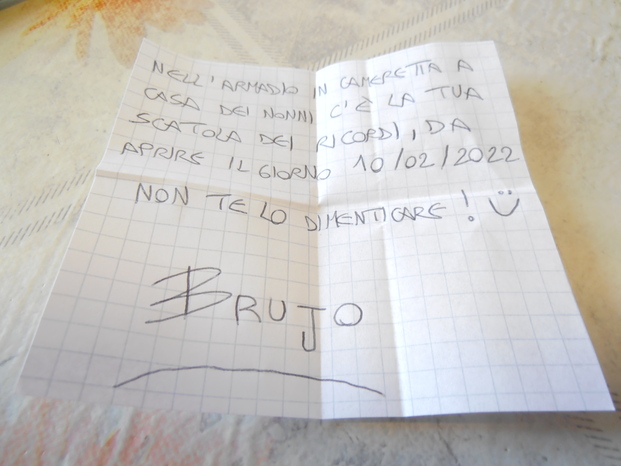 NELL'ARMADIO IN CAMERETTA A
CASA DEI NONNI C'È LA TUA
SCATOLA DEI RICORDI, DA
APRIRE IL GIORNO 10/02/2022
NON TE LO DIMENTICARE! :)
BRUJO